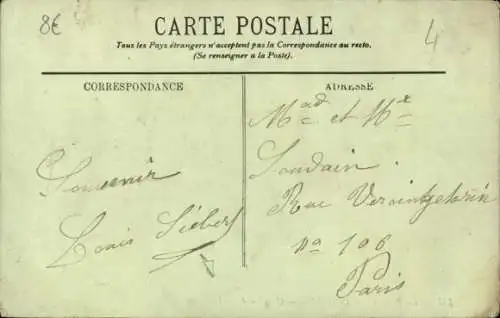 8€
4
CARTE POSTALE
Tous les Pays étrangers n'acceptent pas la Correspondance au recto.
(Se renseigner à la Poste).
CORRESPONDANCE
ADRESSE
Souvenir
Louis Siebert
Mad et Mr
Soudain.
Rue Vercingetorix
no 106
Paris